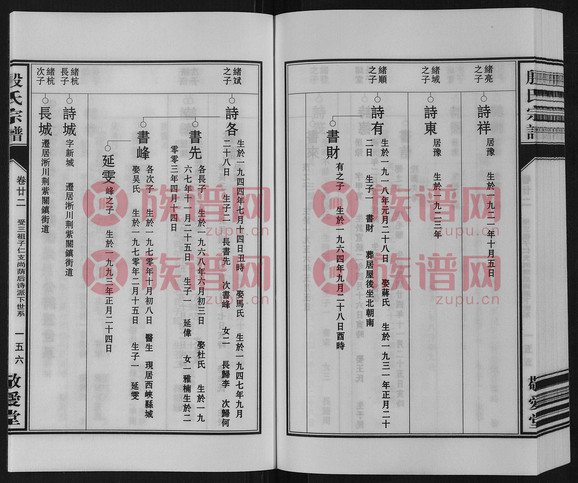 殷氏宗譜
敬愛堂
緒亮之子
詩祥
居豫 生於一九二一年十月五日
緒域之子
詩東
居豫
緒順之子
詩有
生於一九一八年元月二十八日 娶蘇氏 生於一九三一年正月二十
二日 生子一 書財 葬居屋後坐北朝南
書財
有之子 生於一九六四年九月二十八日酉時
緒斌之子
詩各
生於一九四四年七月十四日丑時 娶馬氏 生於一九四七年九月
二十八日 生子二 長書先 次書峰 女二 長歸李 次歸何
書先
各長子 生於一九六八年六月初三日 娶杜氏 生於一九
六七年十一月二十五日 生子一 延偉 女一雅楠生於二
零零三年四月十四日
書峰
各次子 生於一九七零年十月初八日 醫生 現居西峽縣城
娶吳氏 生於一九七零年二月十五日 生子一 延雯
延雯
峰之子 生於一九九三年正月二十四日
緒杭長子
詩城
字新城 遷居淅川荆紫關鎮街道
緒杭次子
長城
遷居淅川荆紫關鎮街道
殷氏宗譜
卷廿二
受三祖子仁支尚蔭后诗派下世系
一五六
敬愛堂
族谱网
zupu.cn
族谱网
zupu.cn
族谱网
zupu.cn
族谱网
zupu.cn